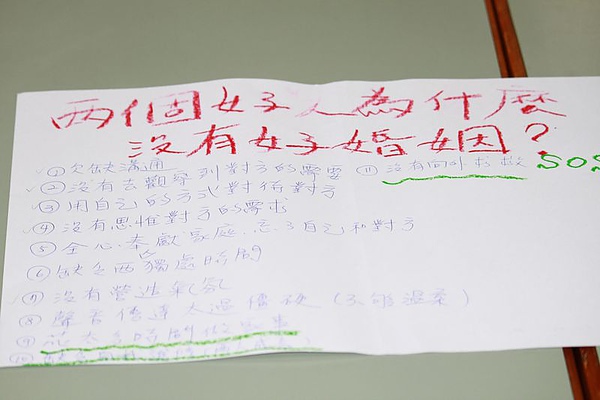 两個好人為什麼
沒有好婚姻？
①欠缺溝通
②沒有去觀察到對方的需要
③用自己的方式對待對方
④沒有思惟對方的需求
⑤全心奉獻家庭,忘了自己和對方
⑥缺乏两人獨處時間
⑦沒有營造氣氛
⑧聲音傳達太過僵硬（不夠溫柔）
⑨花太多時間做家事
⑪沒有向外求救 SOS